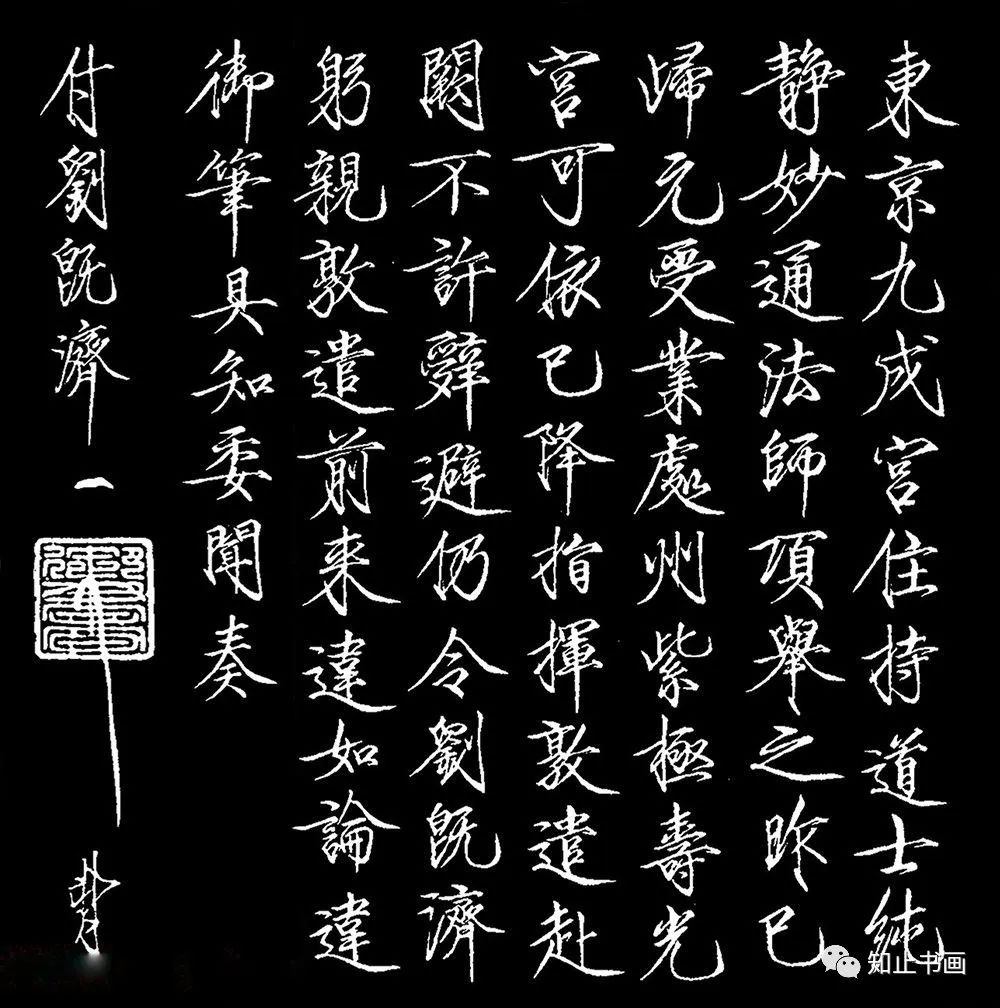 東京九成宮住持道士純
静妙通法師項舉之昨已
歸元受業處州紫極壽光
宮可依已降指揮敦遣赴
闕不許辭避仍令劉既濟
躬親敦遣前来違如論違
御筆具知委聞奏
付劉既濟
知止书画